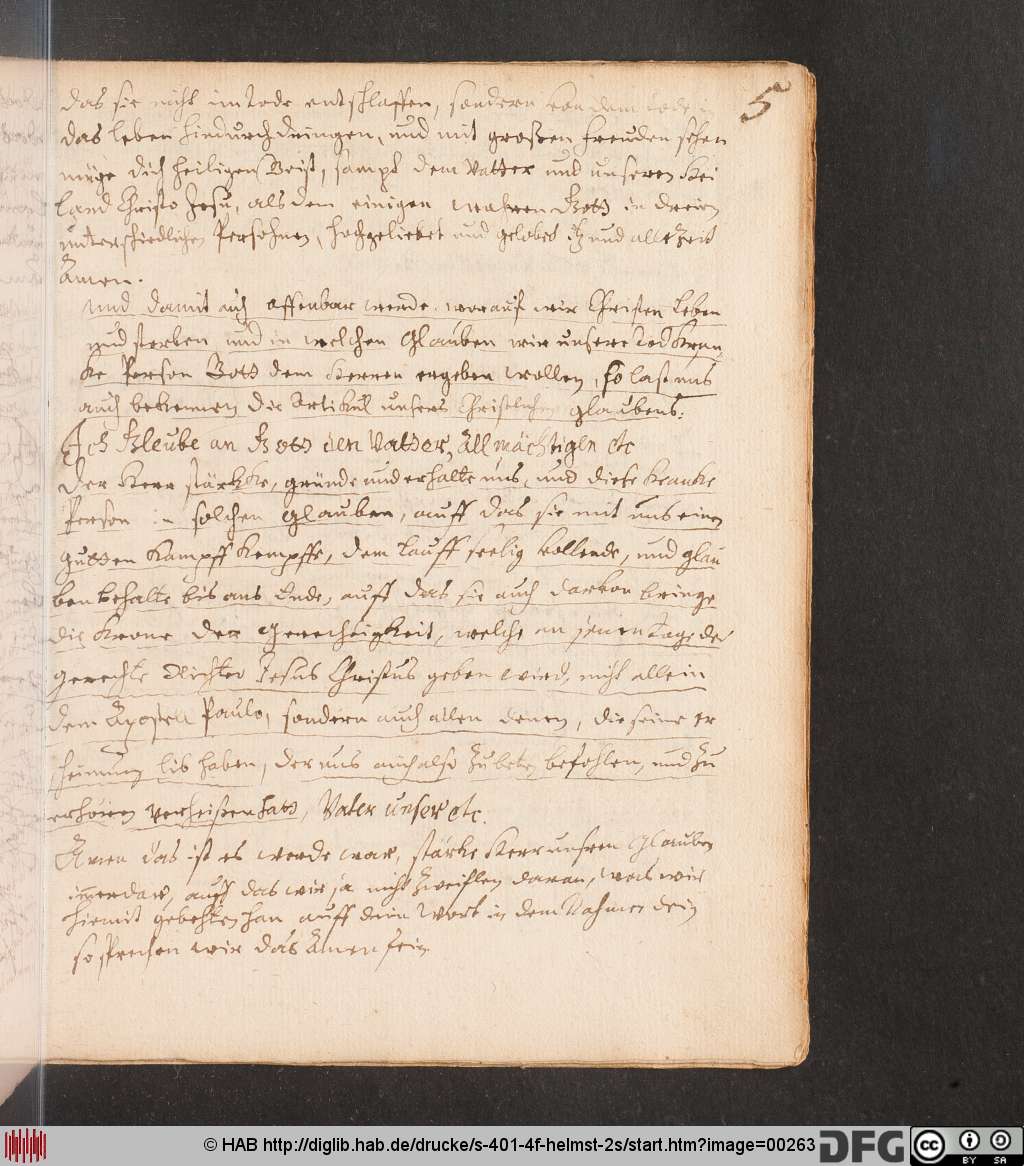 5
das sie nicht im tode entschlaffen, sondern von dem tode in
das leben hindurch dringen, und mit großen freuden sehen
möge dich heiligen Geist, sampt dem Vatter und unserem Hei
land Christo Jesu, als dem einigen wahren Gott in dreien
unterschiedlichen Persohnen, hochgeliebet und gelobet itz und alle Zeit
Amen.
Und damit auch offenbar werde worauf wir Christen leben
und sterben und in welchen Glauben wir unsere todt Kran
ke Person Gott dem Herren ergeben wollen, so last uns
auch bekennen die Artikul unsers Christlichen glaubens:
Ich Gleube an Gott den Vatter, Allmächtigen etc
Der Herr stärkke, gründe und erhalte uns, und diese Krancke
Person in solchen glauben, auff das sie mit uns einen
gutten Kampff Kempffe, dem lauff seelig vollende, und glau
ben behalte bis ans Ende, auff das sie auch darvon bringe
die Krone der Gerechtigkeit, welche an jenem tage der
gerechte Richter Jesus Christus geben wird, nicht allein
dem Apostel Paulo, sondern auch allen denen, die seine er
scheinung lib haben, der uns auch also zu beten befohlen, und zu
erhören verheißen hatt, Vater unser etc.
Amen das ist es werde war, stärke Herr unsren Glauben
immerdar, auff das wir ja nicht zweiflen daran, was wir
hiemit gebehten han auff dein Wort in dem Nahmen dein
so sprechen wir das Amen fein
© HAB http://diglib.hab.de/drucke/s-401-4f-helmst-2s/start.htm?image=00263
DFG
cc
BY SA